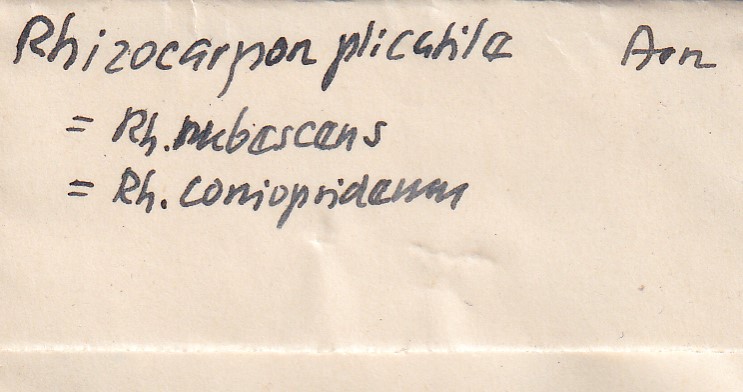 Rhizocarpon plicatile Arn
= Rh. rubescens
= Rh. coniopsideum